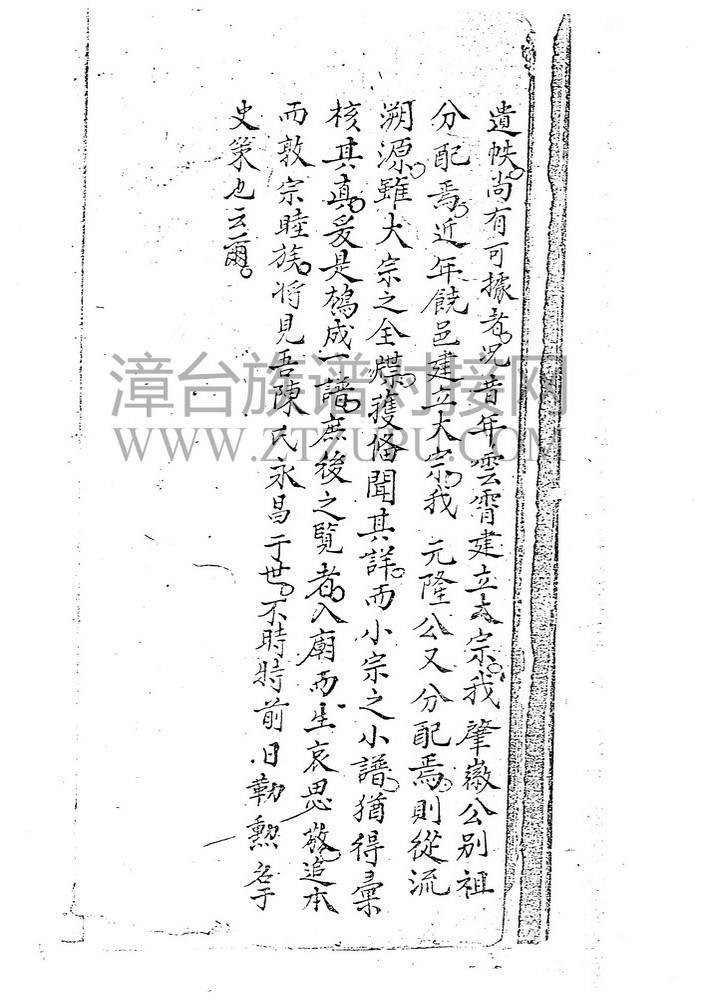 遺帙。尚有可據者。况昔年雲霄建立大宗。我 肇徽公别祖
分配焉。近年饒邑建立大宗。我 元隆公又分配焉。則從流
溯源。雖大宗之全牒。獲俻聞其詳。而小宗之小譜。猶得彙
核其真。爰是鳩成一譜。庶後之覧者。入廟而生哀思。敬追本
而敦宗睦族。将見吾陳氏永昌于世。不時特前日勒勲名于
史策也云爾。
漳台族谱对接网
WWW.ZTZUPU.COM